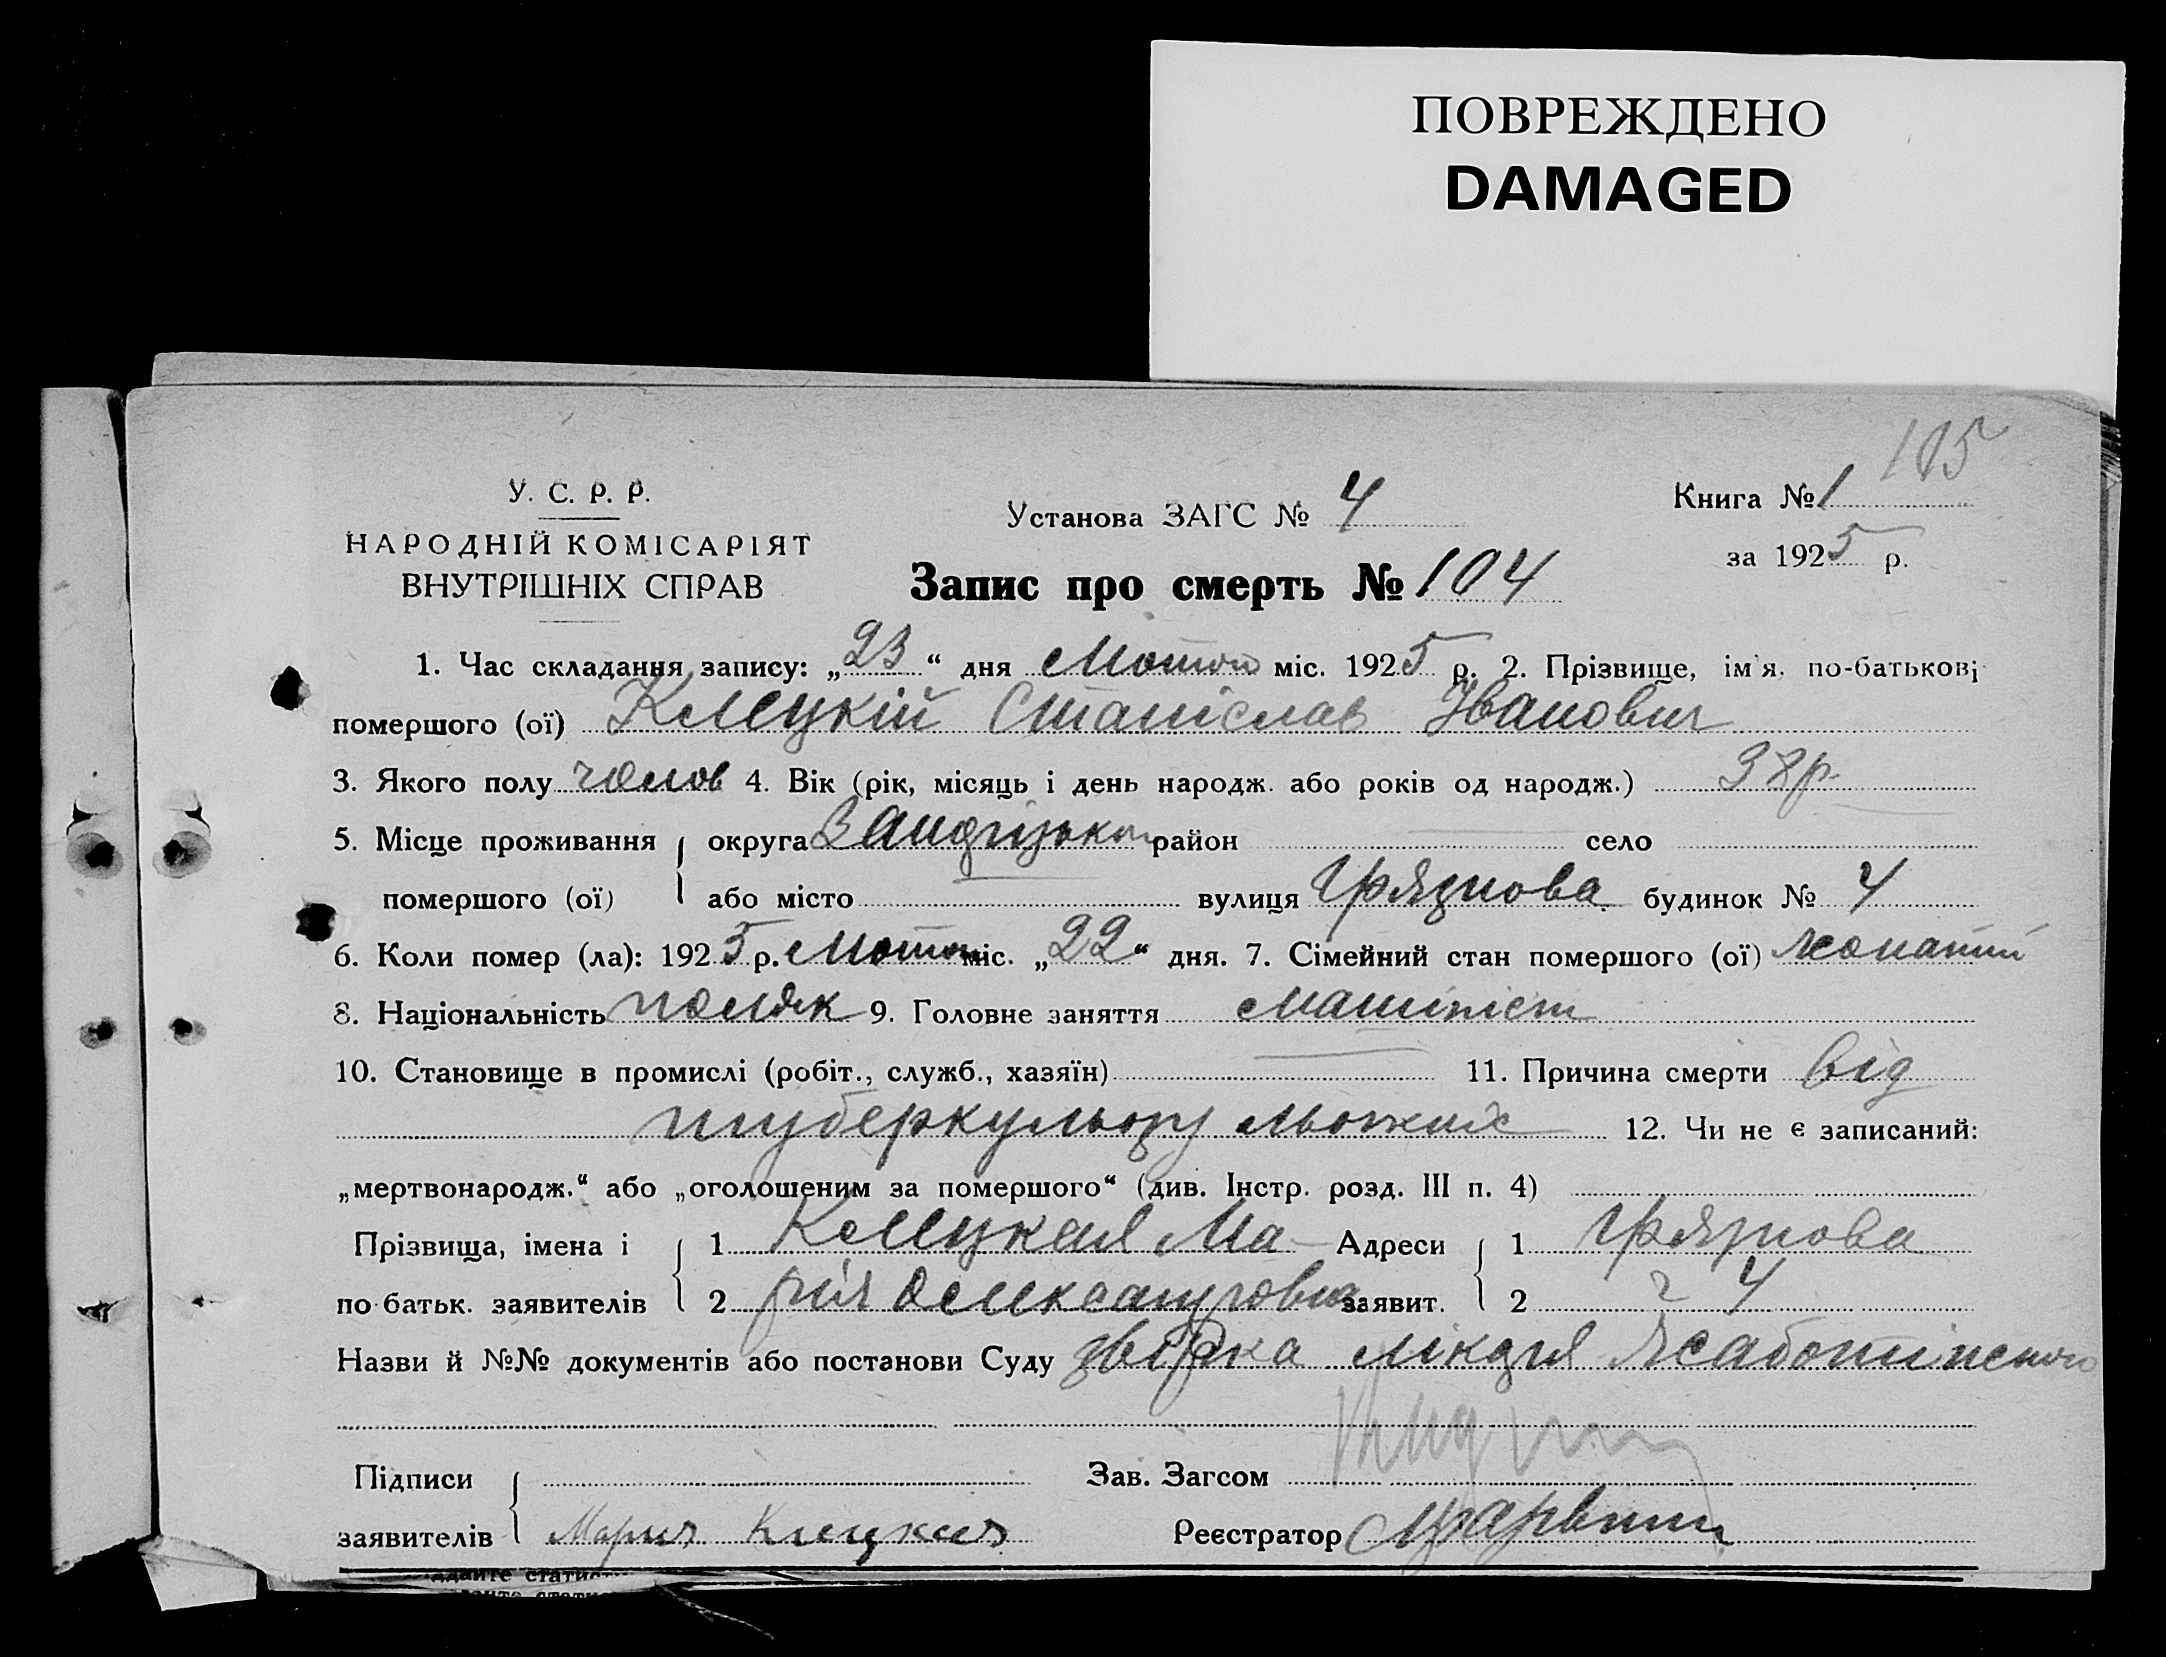 ПОВРЕЖДЕНО
DAMAGED
105
У. С. Р. Р.
НАРОДНІЙ КОМІСАРІЯТ
ВНУТРІШНІХ СПРАВ
Установа ЗАГС № 4
Книга № 1
за 1925 р.
Запис про смерть № 104
1. Час складання запису: „23“ дня Лютого міс. 1925 р. 2. Прізвище, ім'я, по-батькові
помершого (ої) Клецкій Станіслав Іванович
3. Якого полу чолов 4. Вік (рік, місяць і день народж. або років од народж.) 38р.
5. Місце проживання округа район село
помершого (ої) або місто вулиця Грязнова будинок № 4
6. Коли помер (ла): 1925 р. Лютого міс. „22“ дня. 7. Сімейний стан помершого (ої) жонатий
8. Національність поляк 9. Головне заняття машиніст
10. Становище в промислі (робіт., служб., хазяїн) 11. Причина смерти від
туберкульозу льогких 12. Чи не є записаний:
„мертвонародж.“ або „оголошеним за помершого“ (див. Інстр. розд. III п. 4)
Прізвища, імена і 1 Клецкая Ма- Адреси 1 Грязнова
по-батьк. заявителів 2 рія Олександровна заявит. 2 4
Назви й №№ документів або постанови Суду лікаря
Підписи Зав. Загсом
заявителів Мария Клецкая Реєстратор